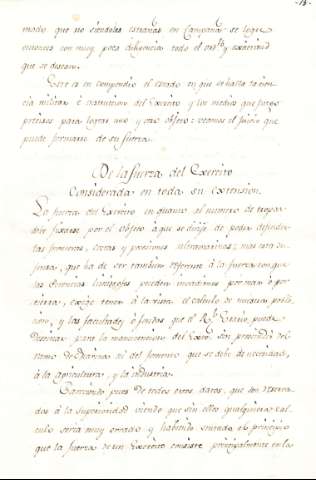 modo que no siendoles estrañas en Campaña se logre
entonces con muy poca diferencia todo el orñ y exâctitud
que se desean.
Este es en compendio el estado en que se halla la cien
cia militar é instruccion del Exercito y los medios que juzgo
precisos para lograr uno y otro objeto: veamos el juicio que
puede formarse de su fuerza.
De la fuerza del Exercito
Considerada en toda su Extension.
La fuerza del Exercito en quanto al numero de tropas
debe fixarse por el objeto à que se dirije de poder defender
las fronteras, costas y posesiones ultramarinas; mas esta de
que ha de ser tambien referente á la fuerza con que
las Potencias limitrofes pueden invadirnos por mar ó por
tierra, exige tener à la vista el calculo de nuestra pobla
cion, y las facultades ó fondos que el Rl. Erario puede
destinar para la manutencion del Exto. sin perjuicio del
ramo de Marina ni del fomento que se debe de necesidad,
à la agricultura y la industria.
Partiendo pues de todos estos datos, que son reserva
dos á la Superioridad viendo que sin ellos qualquiera cal
culo seria muy errado, y habiendo sentado el principio
que la fuerza de un Exercito consiste principalmente en la